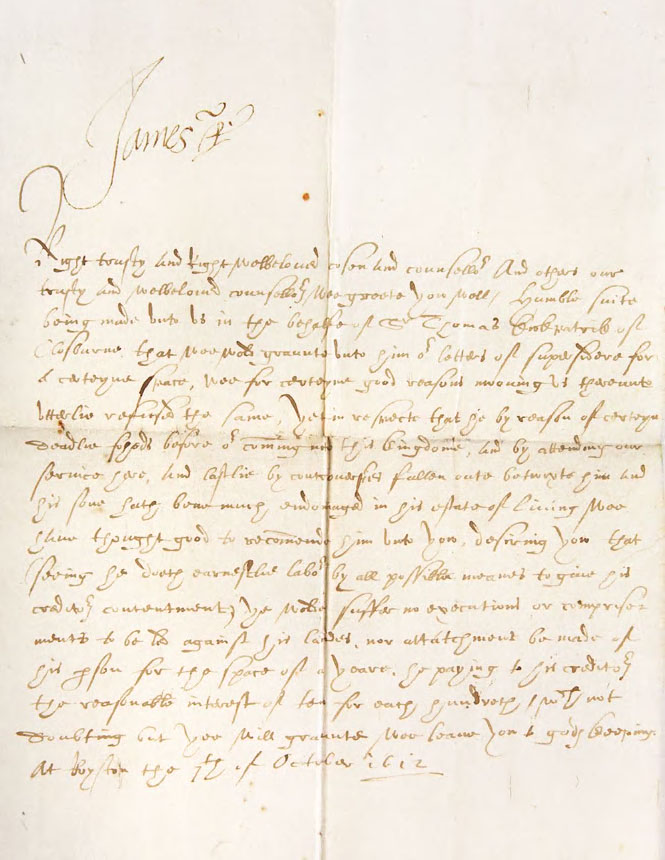 James R.
Right trusty and Right welbeloved cosen and counsellor And others our
trusty and welbeloved counsellors Wee greete you well, Humble suite
being made unto us in the behalfe of Sr Thomas Kirkpatrik of
Closburne, that wee wold graunte unto him or letters of supersedere for
a certeyne space, wee for certeyne good reasons moouing us thereunto
utterlie refused the same, yet in respecte that he by reason of certeyn
deadlie fohods before or comming unto this kingdome, and by attending our
service here, and lastlie by controversies fallen oute betwixte him and
his sone hath bene much endomaged in his estate of liuing Wee
haue thought good to recommend him unto you, desiring you that
(seeing he doeth earnestlie labor by all possible meanes to giue his
creditors contentment) ye wolde suffer no executions or comprise-
ments to be led against his landes, nor attatchment be made of
his person for the space of a yeare, he paying to his creditors
the reasonable interest of ten for each hundreth, wch not
doubting but yee will graunte wee leaue you to gods keeping
At Royston the 7th of October 1612